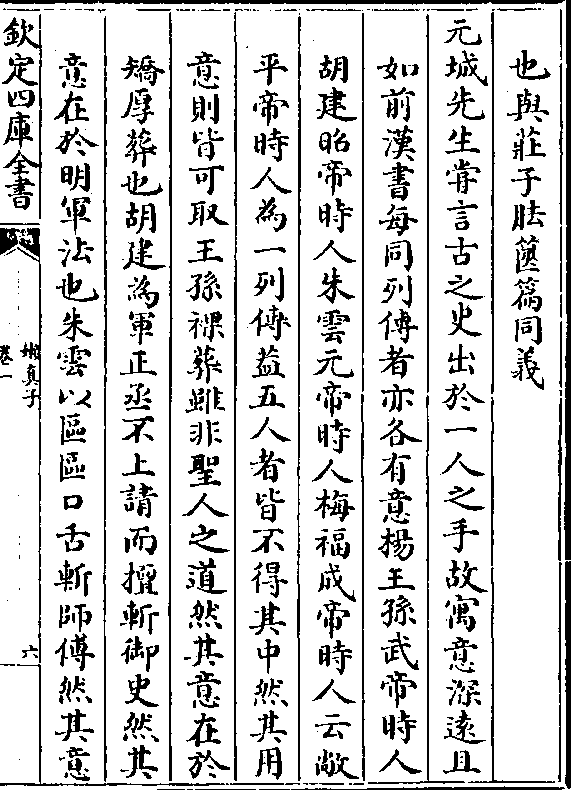 也與莊子胠篋篇同義
元城先生嘗言古之史出於一人之手故寓意深遠且
如前漢書每同列傳者亦各有意揚王孫武帝時人
胡建昭帝時人朱雲元帝時人梅福成帝時人云敞
平帝時人為一列傳葢五人者皆不得其中然其用
意則皆可取王孫裸葬雖非聖人之道然其意在於
矯厚葬也胡建為軍正丞不上請而擅斬御史然其
意在於明軍法也朱雲以區區口舌斬師傅然其意
欽定四庫全書
嬾真子
卷一
六